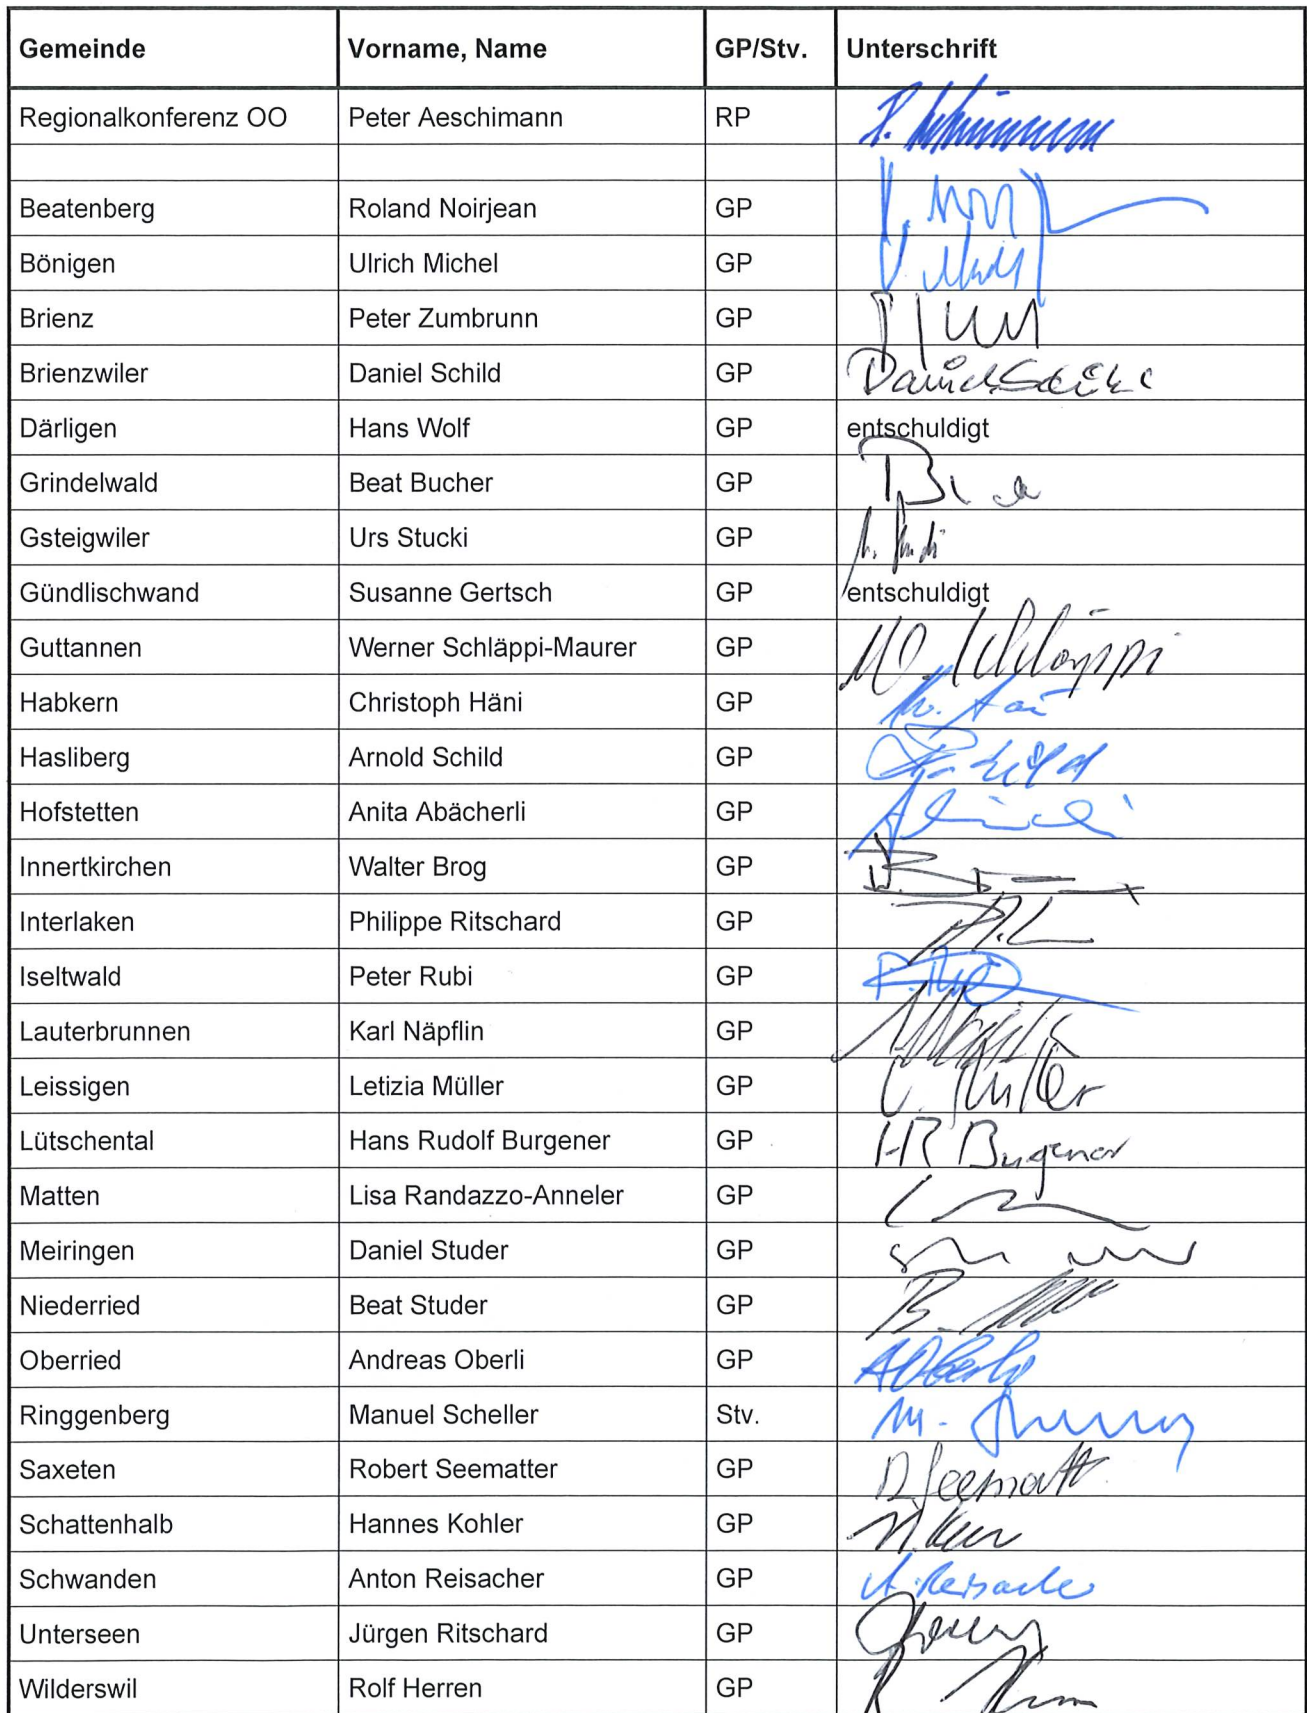 Gemeinde Vorname, Name GP/Stv. Unterschrift
Regionalkonferenz OO Peter Aeschimann RP
Beatenberg Roland Noirjean GP
Bönigen Ulrich Michel GP
Brienz Peter Zumbrunn GP
Brienzwiler Daniel Schild GP Daniel Schild
Därligen Hans Wolf GP entschuldigt
Grindelwald Beat Bucher GP
Gsteigwiler Urs Stucki GP
Gündlischwand Susanne Gertsch GP entschuldigt
Guttannen Werner Schläppi-Maurer GP W. Schläppi
Habkern Christoph Häni GP
Hasliberg Arnold Schild GP
Hofstetten Anita Abächerli GP
Innertkirchen Walter Brog GP
Interlaken Philippe Ritschard GP
Iseltwald Peter Rubi GP
Lauterbrunnen Karl Näpflin GP
Leissigen Letizia Müller GP L. Müller
Lütschental Hans Rudolf Burgener GP HR Burgener
Matten Lisa Randazzo-Anneler GP
Meiringen Daniel Studer GP
Niederried Beat Studer GP
Oberried Andreas Oberli GP A Oberli
Ringgenberg Manuel Scheller Stv.
Saxeten Robert Seematter GP R Seematt
Schattenhalb Hannes Kohler GP
Schwanden Anton Reisacher GP A. Reisacher
Unterseen Jürgen Ritschard GP
Wilderswil Rolf Herren GP